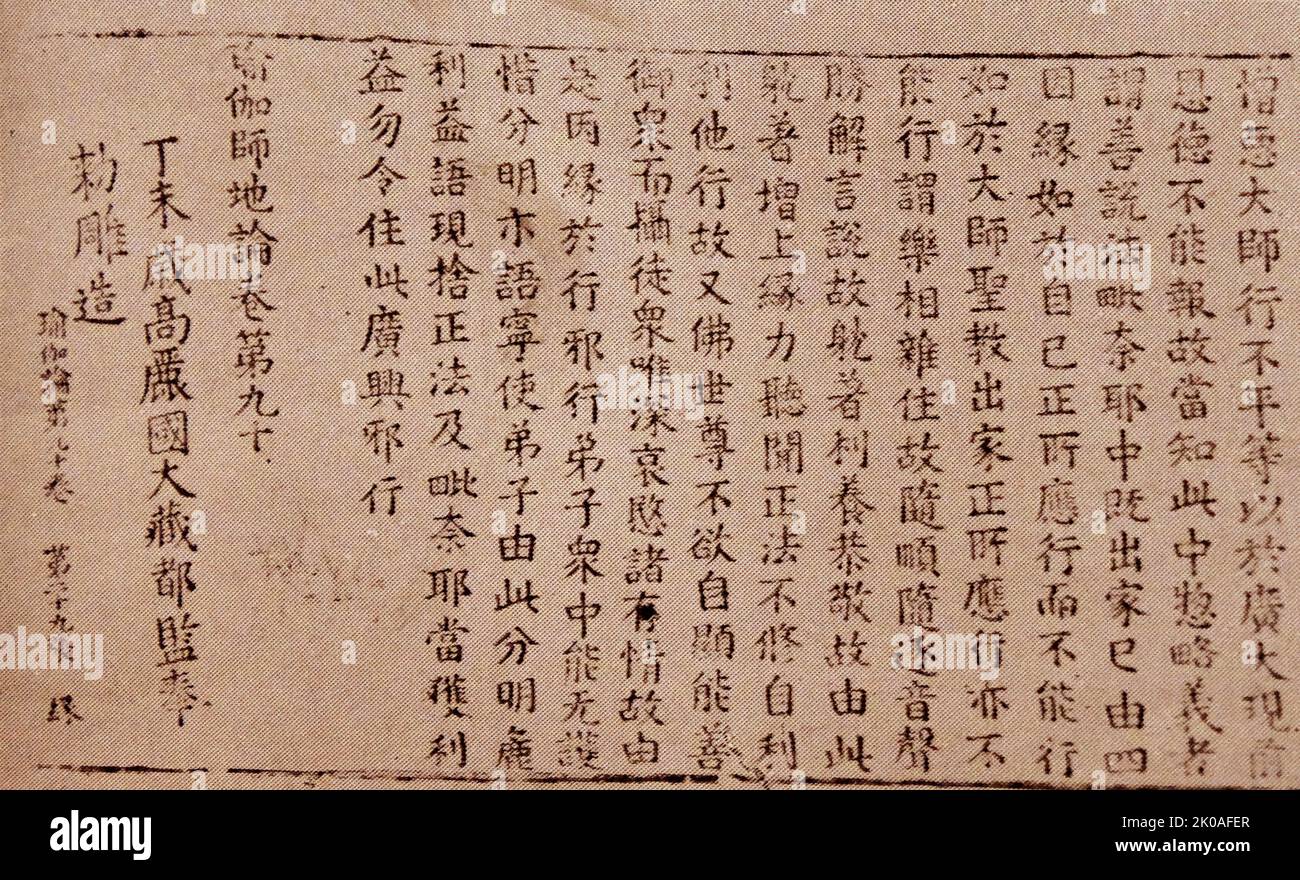 憎恚大師行不平等以於廣大現前
恩德不能報故當知此中惣略義者
謂善說法毗奈耶中旣出家已由四
因緣如於自己正所應行而不能行
如於大師聖教出家正所應行亦不
能行謂樂相雜住故隨順隨逐音聲
勝解言說故躭著利養恭敬故由此
躭著增上緣力聽聞正法不修自利
利他行故又佛世尊不欲自顯能善
御衆而攝徒衆唯深哀愍諸有情故由
是因緣於行邪行弟子衆中能无護
惜分明示語寧使弟子由此分明麁
利益語現捨正法及毗奈耶當獲利
益勿令住此廣興邪行
瑜伽師地論卷第九十
丁未歲高麗國大藏都監奉
勅雕造
瑜伽論第九十卷 第二十九張
alamy
Image ID: 2K0AFER
www.alamy.com